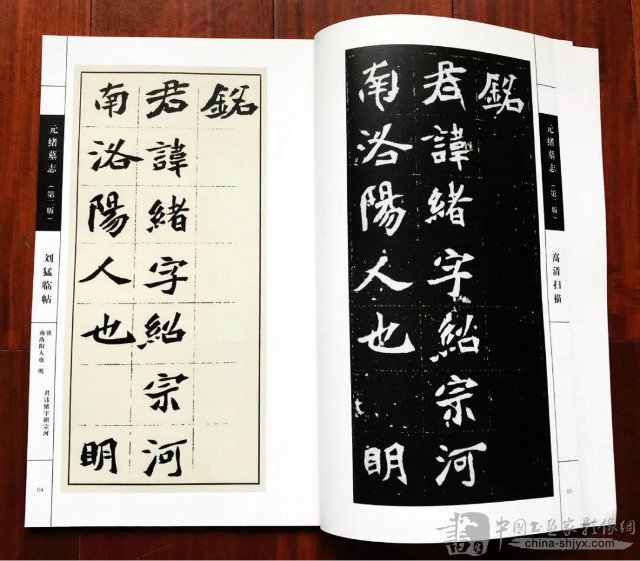 銘
君諱緒字紹宗河
南洛陽人也明
元绪墓志(第二版)
刘猛临帖
铭
君讳绪字绍宗河
南洛阳人也 明
04
銘
君諱緒字紹宗河
南洛陽人也明
元绪墓志(第二版)
高清扫描
05
書
中国书画家影像網
china-shjyx.com